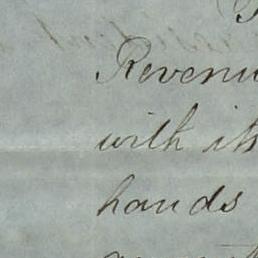 Revenu
with its
hands